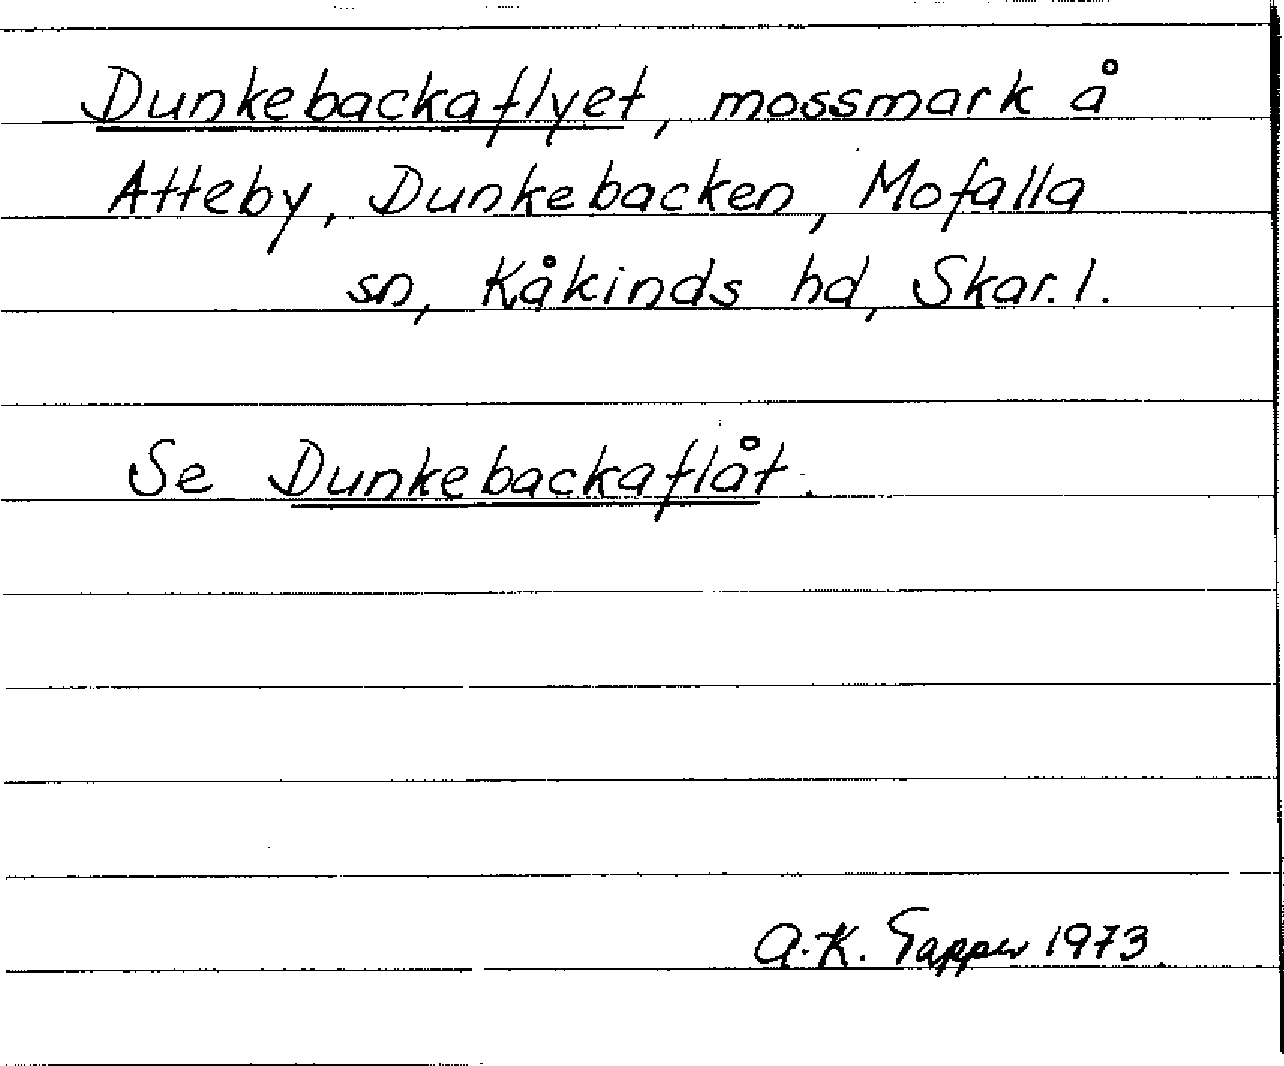 Dunkebackaflyet, mossmark å
Atteby, Dunkebacken, Mofalla
sn, Kåkinds hd, Skar. l.
Se Dunkebackaflåt.
A.K. Tapper 1973.